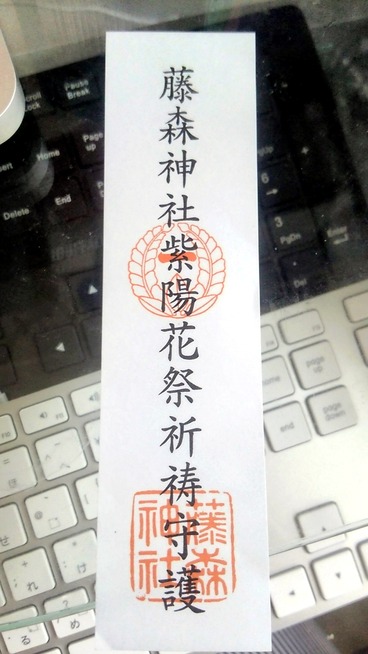 藤森神社紫陽花祭祈祷守護
藤森
神社
Scroll
Lock
Pause
Break
Home
Page
up
Delete
End
6
3
PgDn
Enter
Del
home
page
up
end
page
down
せ
け
れ
る
め